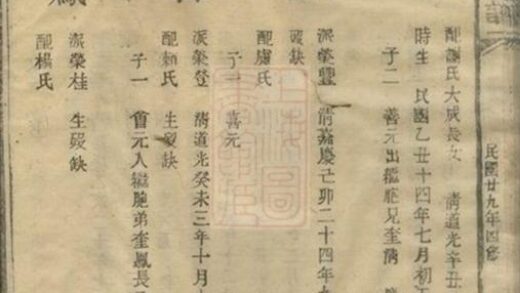 民國廿九年四修
配謝氏大成長女 清道光辛丑
時生 民國乙丑十四年七月初
子二 善元出繼胞兄奎清
派榮豐 清嘉慶己卯二十四年
歿缺
配盧氏
子一 喜元
派榮登 清道光癸未三年十月
配賴氏 生歿缺
子一 首元入繼胞弟奎鳳長
派榮桂 生歿缺
配楊氏